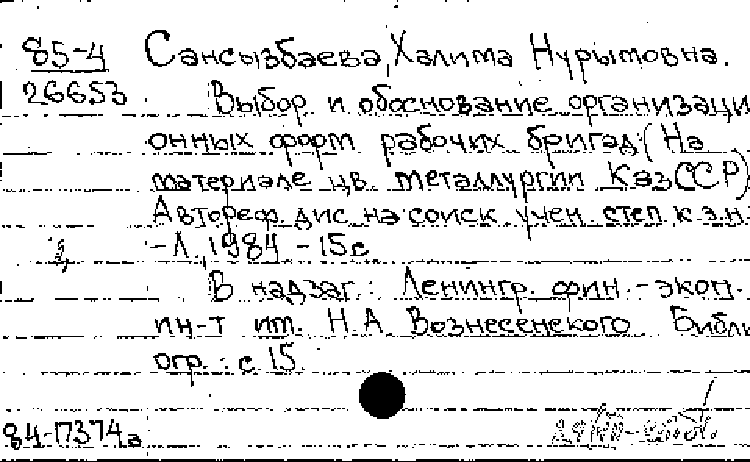 85-4 Сансызбаева, Халима Нурымовна.
26653 Выбор и обоснование организаци
онных форм рабочих бригад: (На
материале цв. металлургии КазССР)
Автореф. дис. на соиск. учен. степ. к.э.н.
-Л., 1984 - 15с.
В надзаг.: Ленингр. фин.-экон.
ин-т им. Н.А. Вознесенского. Библи
огр.: с 15
84-П374а